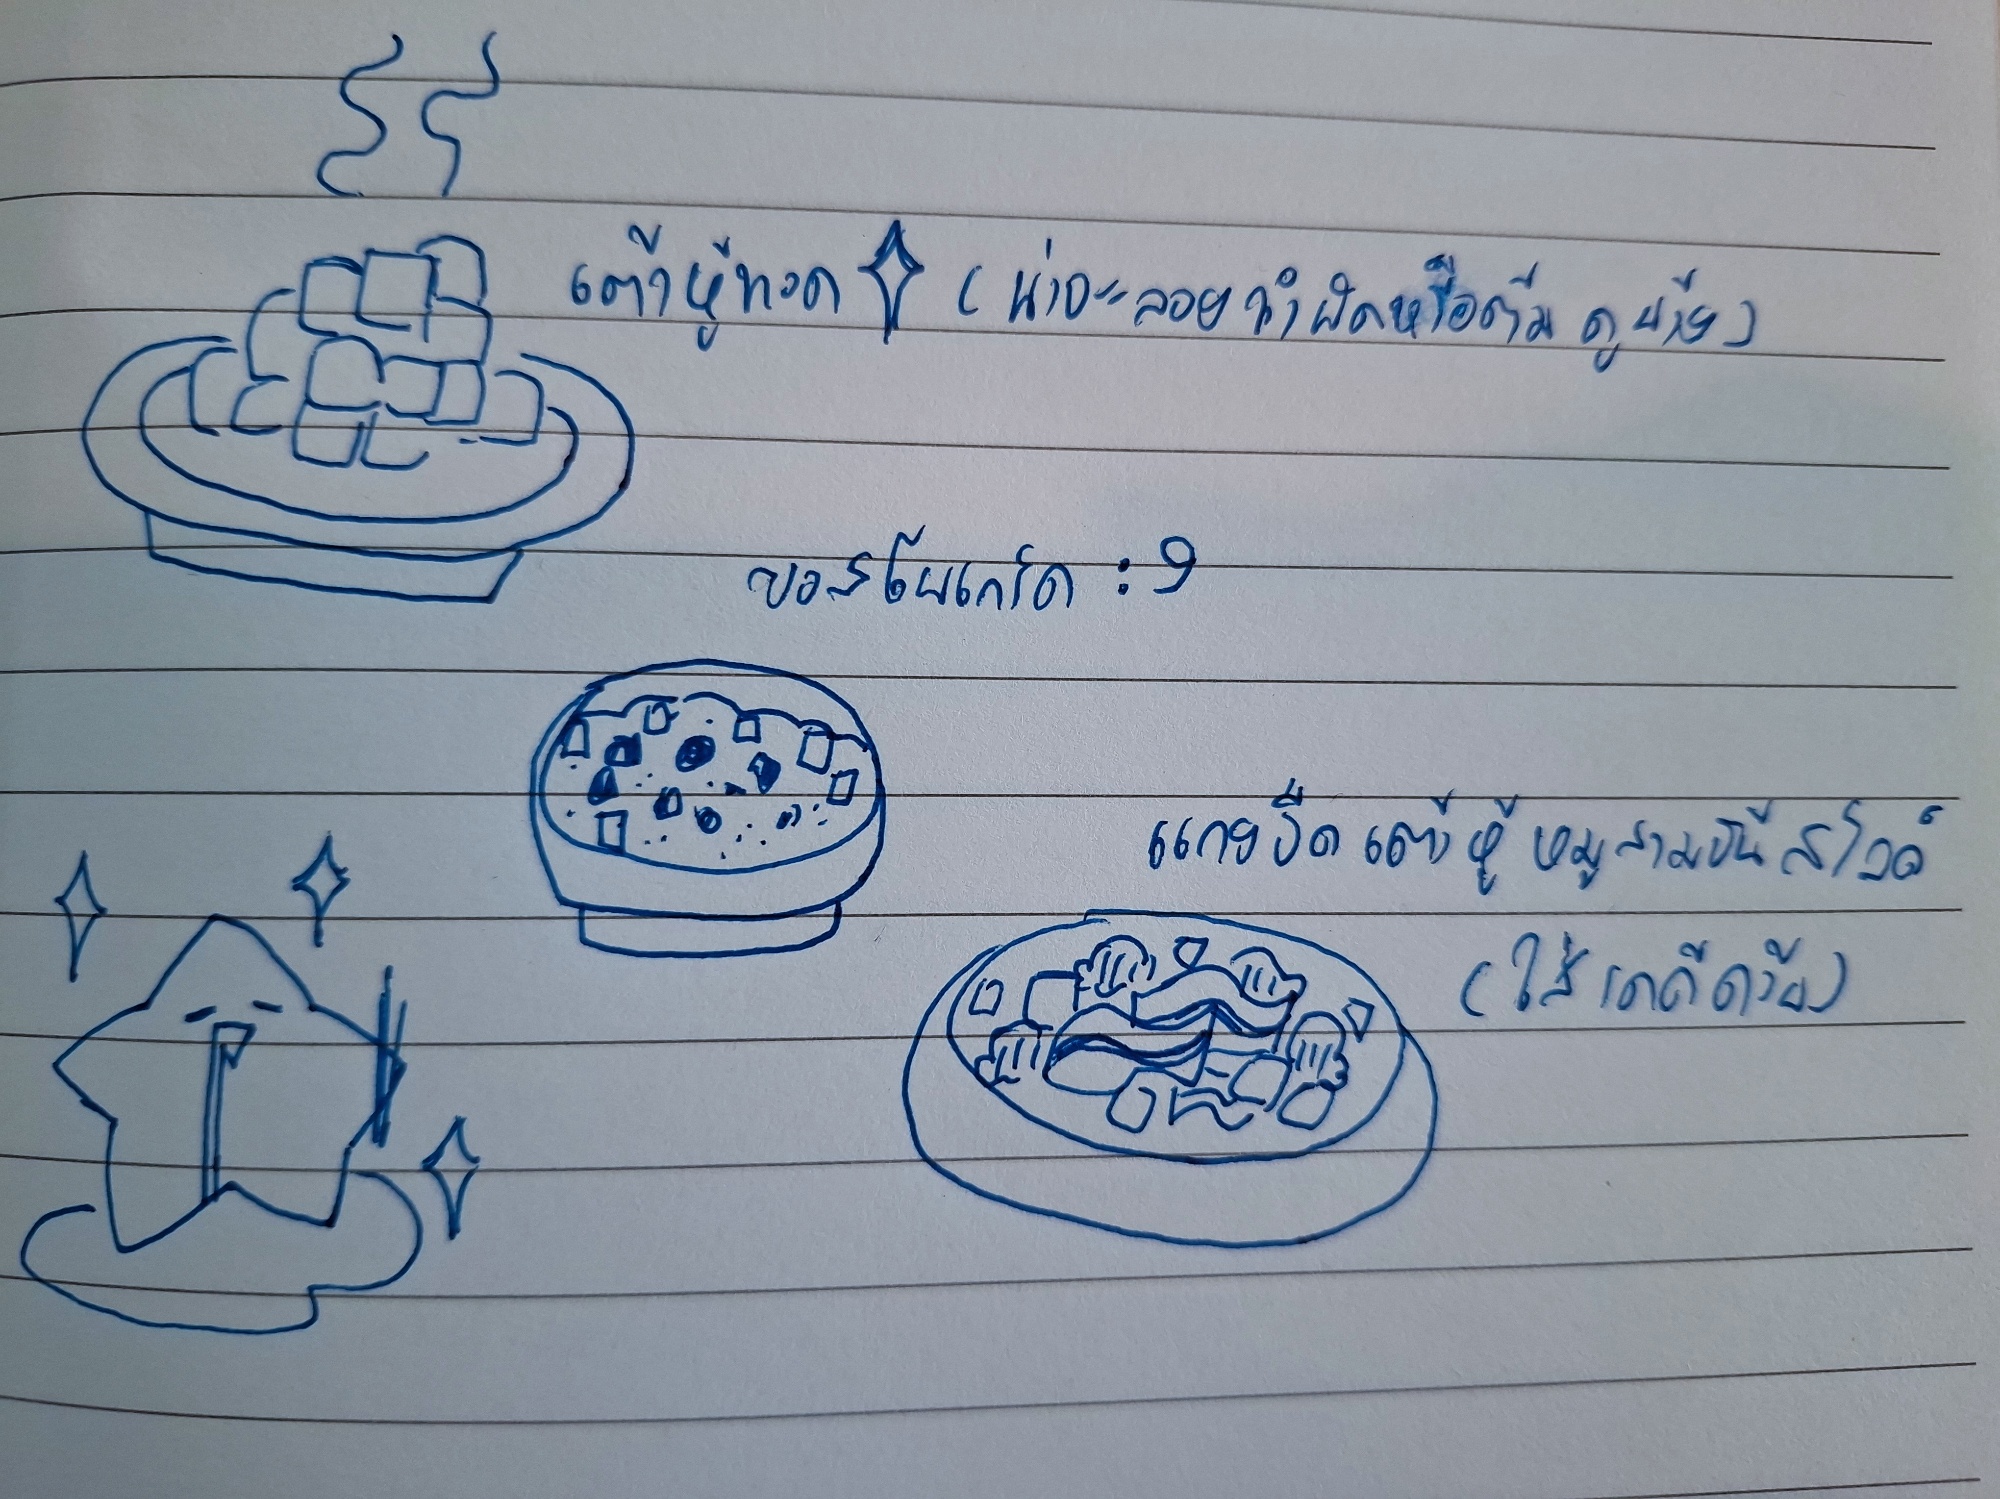 เต้าหู้ทอด (น่าจะลอยนำผัดหรือต้ม ดูน่าย)
ซอสโยเกิร์ต :9
แกงจืด เต้าหู้ หมูสามชั้น สไลด์
(ใส่ เห็ดด้วย)